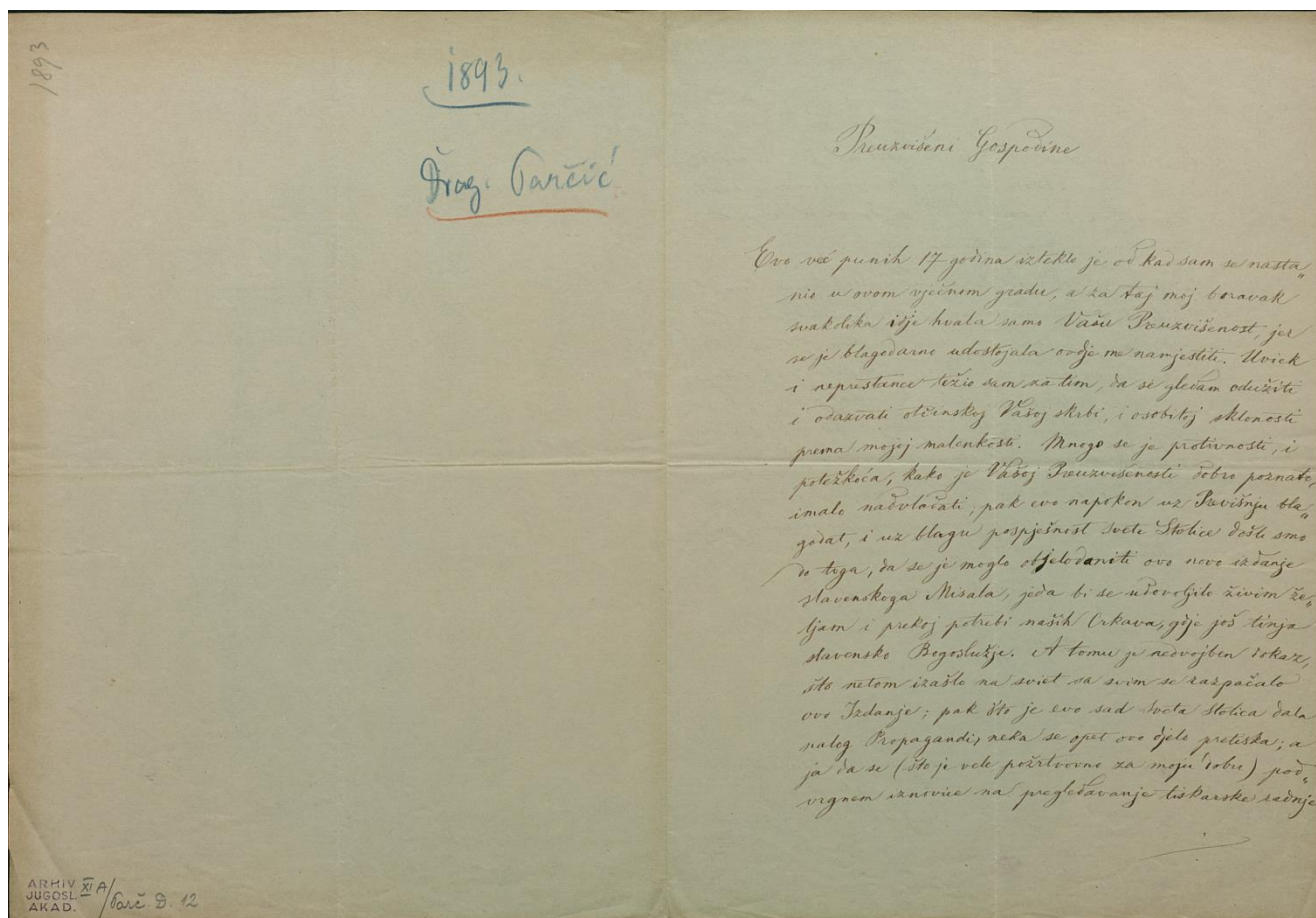 1893
1893.
Drag. Parčić
ARHIV
JUGOSL.
AKAD.
XI A/
Parč. D. 12
Preuzvišeni Gospodine
Evo već punih 17 godina izteklo je od kad sam se nasta„
nio u ovom vječnom gradu, a za taj moj boravak
svakolika idje hvala samo Vašu Preuzvišenost, jer
se je blagodarno udostojala ovdje me namjestiti. Uviek
i neprestance težio sam za tim, da se gledam odužiti
i odazvati otčinskoj Vašoj skrbi, i osobitoj sklonosti
prema mojoj malenkosti. Mnogo se je protivnosti, i
potežkoća, kako je Vašoj Preuzvišenosti dobro poznato,
imalo nadvladati; pak evo napokon uz Previšnju bla„
godat, i uz blagu pospješnost svete Stolice došli smo
do toga, da se je moglo objelodaniti ovo novo izdanje
slavenskoga Misala, jeda bi se udovoljilo živim že„
ljam i prekoj potrebi naših Crkava, gdje još tinja
slavensko Bogoslužje. A tomu je nedvojben dokaz,
što netom izašlo na sviet sa svim se razpačalo
ovo Izdanje; pak što je evo sad Sveta Stolica dala
nalog Propagandi, neka se opet ovo djelo pretiska; a
ja da se (što je vele požrtvovno za moju dobu) pod„
vrgnem iznovice na pregledavanje tiskarske radnje